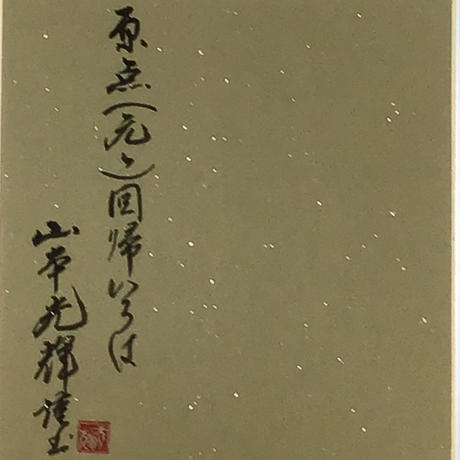 原点(元々)回帰いろは
山本光輝謹書